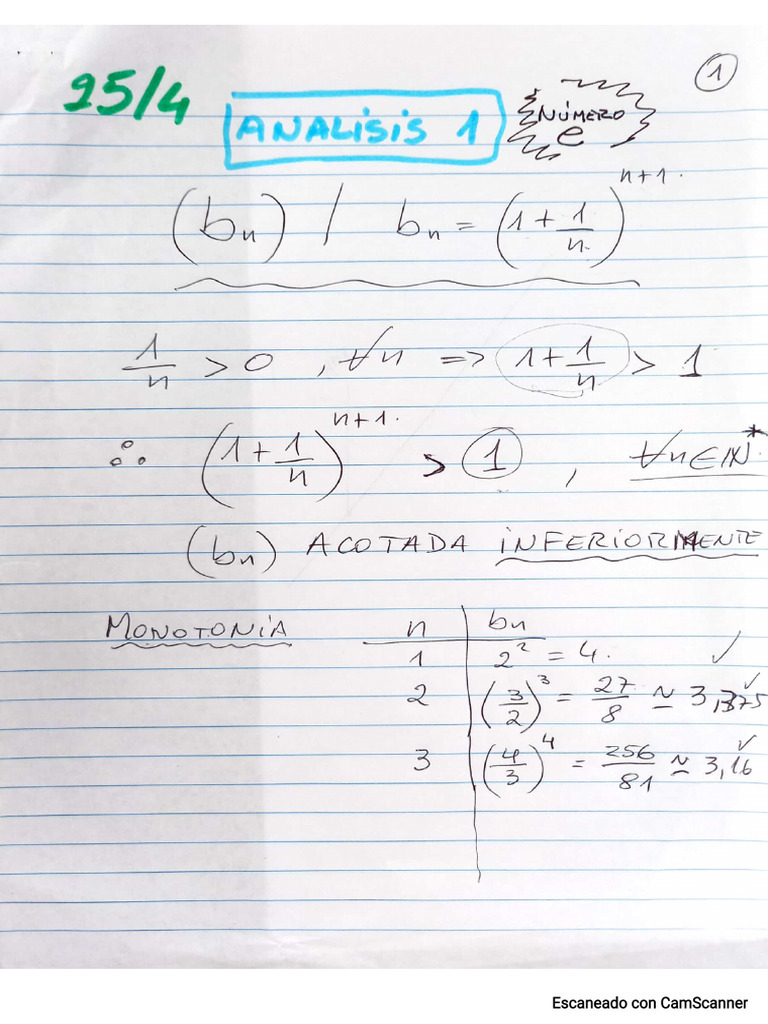 1
25/4 ANALISIS 1 NÚMERO e
(bn) / bn = (1 + 1/n)^(n+1).
1/n > 0 , ∀n => 1 + 1/n > 1
∴ (1 + 1/n)^(n+1). > 1 , ∀n∈IN*.
(bn) ACOTADA INFERIORMENTE
MONOTONIA n bn
1 2² = 4. ✓
2 (3/2)³ = 27/8 ≃ 3,375 ✓
3 (4/3)⁴ = 256/81 ≃ 3,16 ✓
Escaneado con CamScanner